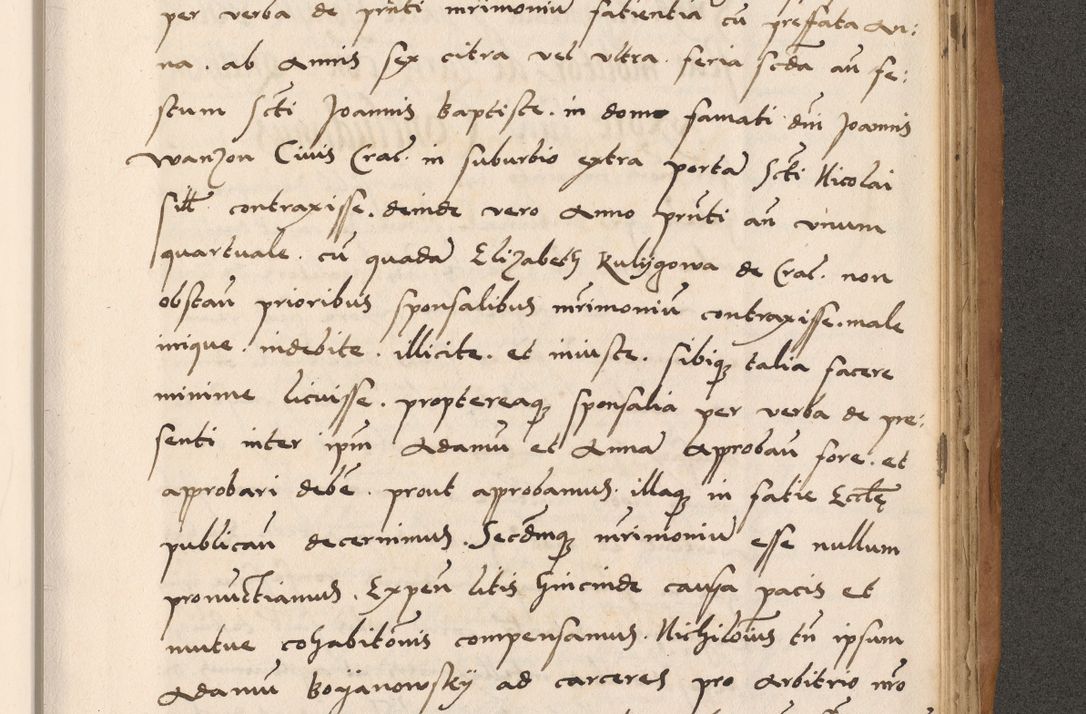 per verba de prnti mrimoniu fatientia cu preffata An:
na . ab Annis sex citra vel vltra . feria scda an fe:
stum Scti Joannis Baptiste . in domo famati dni Joannis
Wanzon Civis Crac. in suburbio extra porta Scti Nicolai
sitt contraxisse . deinde vero Anno prnti an vnum
quartuale . cu quada Elizabeth Kulijgowa de Crac. non
obstan prioribus sponsalibus mrimoniu contraxisse . male
inique . indebite . illicite . et iniuste . sibiq talia facere
minime licuisse . proptereaq sponsalia per verba de pre:
senti inter ipm Adamu et Anna approban fore . et
approbari debe . prout approbamus . illaq in fatie Eccle
publican decernimus . Secdmq mrimoniu esse nullum
pronuctiamus . Expen litis hincinde causa pacis et
mutue cohabitonis compensamus . Nichiloius tn ipsum
Adamu Boijanowskij ad carceres pro Arbitrio nro